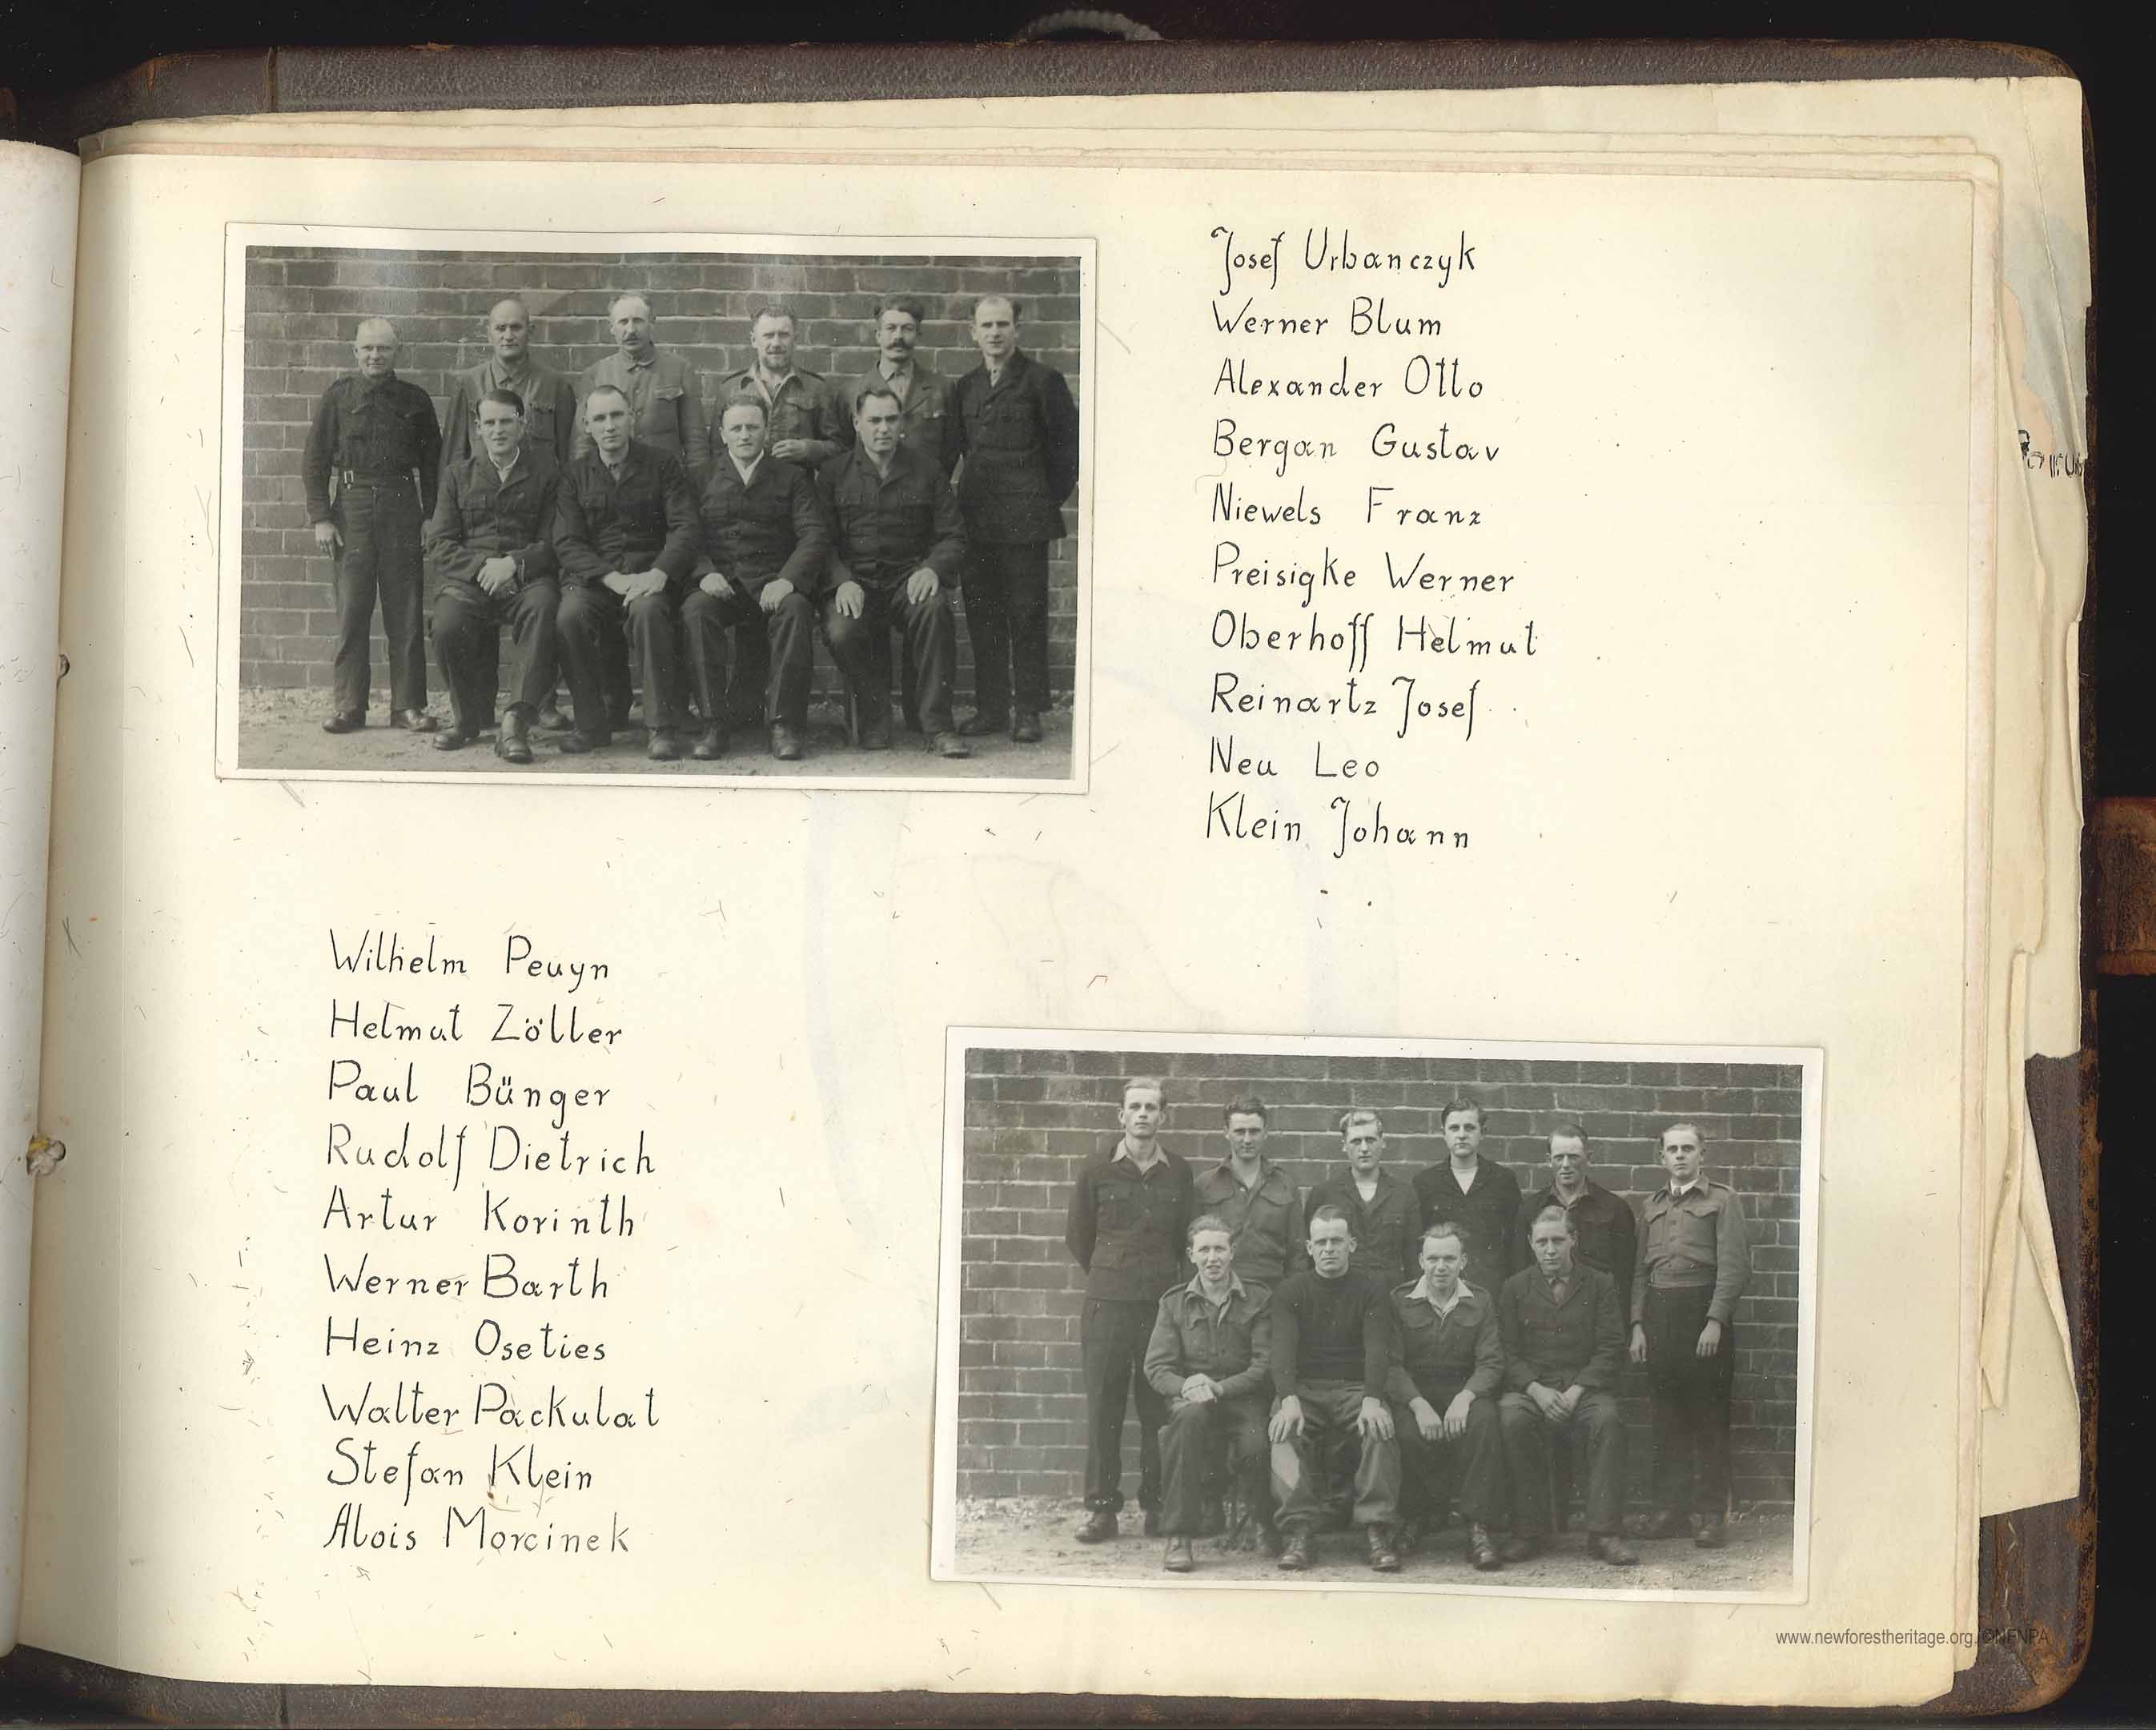 Josef Urbanczyk
Werner Blum
Alexander Otto
Bergan Gustav
Niewels Franz
Preisigke Werner
Oberhoff Helmut
Reinartz Josef
Neu Leo
Klein Johann
Wilhelm Peuyn
Helmut Zöller
Paul Bünger
Rudolf Dietrich
Artur Korinth
Werner Barth
Heinz Oseties
Walter Packulat
Stefan Klein
Alois Morcinek
www.newforestheritage.org ©NFNPA